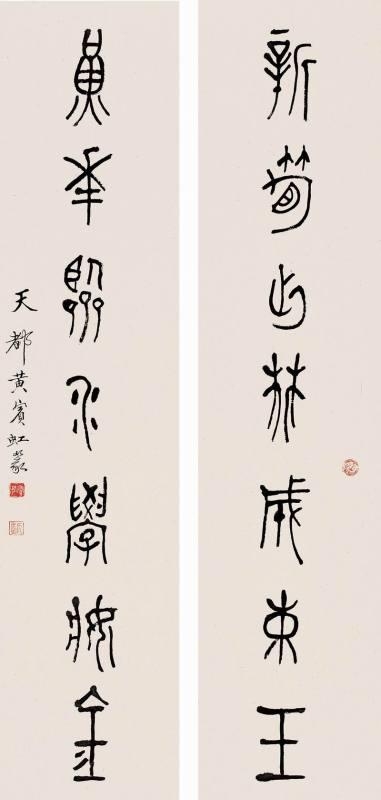 新筍出林成束玉
黃華臨水學妝金
天都黃賓虹篆